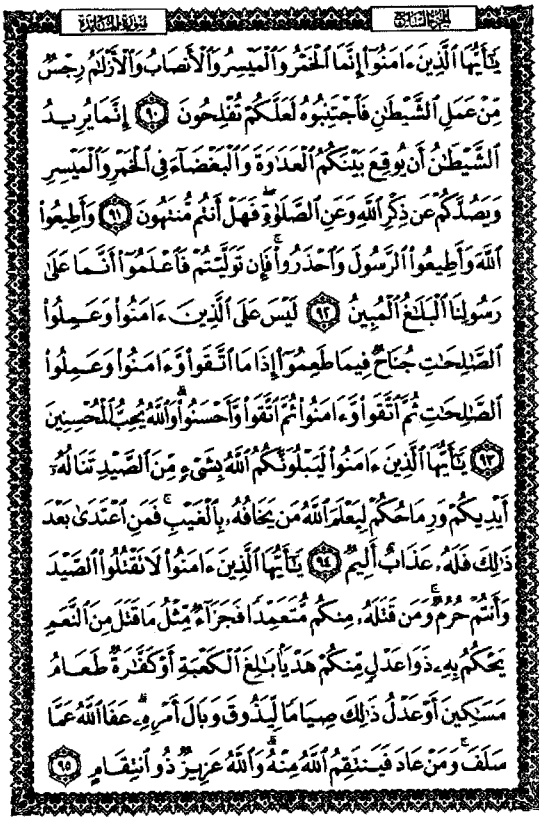 الجزء السابع
سورة المائدة
يَٰٓأَيُّهَا ٱلَّذِينَ ءَامَنُوٓا۟ إِنَّمَا ٱلْخَمْرُ وَٱلْمَيْسِرُ وَٱلْأَنصَابُ وَٱلْأَزْلَٰمُ رِجْسٌ
مِّنْ عَمَلِ ٱلشَّيْطَٰنِ فَٱجْتَنِبُوهُ لَعَلَّكُمْ تُفْلِحُونَ ٩٠ إِنَّمَا يُرِيدُ
ٱلشَّيْطَٰنُ أَن يُوقِعَ بَيْنَكُمُ ٱلْعَدَٰوَةَ وَٱلْبَغْضَآءَ فِى ٱلْخَمْرِ وَٱلْمَيْسِرِ
وَيَصُدَّكُمْ عَن ذِكْرِ ٱللَّهِ وَعَنِ ٱلصَّلَوٰةِ ۖ فَهَلْ أَنتُم مُّنتَهُونَ ٩١ وَأَطِيعُوا۟
ٱللَّهَ وَأَطِيعُوا۟ ٱلرَّسُولَ وَٱحْذَرُوا۟ ۚ فَإِن تَوَلَّيْتُمْ فَٱعْلَمُوٓا۟ أَنَّمَا عَلَىٰ
رَسُولِنَا ٱلْبَلَٰغُ ٱلْمُبِينُ ٩٢ لَيْسَ عَلَى ٱلَّذِينَ ءَامَنُوا۟ وَعَمِلُوا۟
ٱلصَّٰلِحَٰتِ جُنَاحٌ فِيمَا طَعِمُوٓا۟ إِذَا مَا ٱتَّقَوا۟ وَّءَامَنُوا۟ وَعَمِلُوا۟
ٱلصَّٰلِحَٰتِ ثُمَّ ٱتَّقَوا۟ وَّءَامَنُوا۟ ثُمَّ ٱتَّقَوا۟ وَّأَحْسَنُوا۟ ۗ وَٱللَّهُ يُحِبُّ ٱلْمُحْسِنِينَ
٩٣ يَٰٓأَيُّهَا ٱلَّذِينَ ءَامَنُوا۟ لَيَبْلُوَنَّكُمُ ٱللَّهُ بِشَىْءٍ مِّنَ ٱلصَّيْدِ تَنَالُهُۥٓ
أَيْدِيكُمْ وَرِمَاحُكُمْ لِيَعْلَمَ ٱللَّهُ مَن يَخَافُهُۥ بِٱلْغَيْبِ ۚ فَمَنِ ٱعْتَدَىٰ بَعْدَ
ذَٰلِكَ فَلَهُۥ عَذَابٌ أَلِيمٌ ٩٤ يَٰٓأَيُّهَا ٱلَّذِينَ ءَامَنُوا۟ لَا تَقْتُلُوا۟ ٱلصَّيْدَ
وَأَنتُمْ حُرُمٌ ۚ وَمَن قَتَلَهُۥ مِنكُم مُّتَعَمِّدًا فَجَزَآءٌ مِّثْلُ مَا قَتَلَ مِنَ ٱلنَّعَمِ
يَحْكُمُ بِهِۦ ذَوَا عَدْلٍ مِّنكُمْ هَدْيًۢا بَٰلِغَ ٱلْكَعْبَةِ أَوْ كَفَّٰرَةٌ طَعَامُ
مَسَٰكِينَ أَوْ عَدْلُ ذَٰلِكَ صِيَامًا لِّيَذُوقَ وَبَالَ أَمْرِهِۦ ۗ عَفَا ٱللَّهُ عَمَّا
سَلَفَ ۚ وَمَنْ عَادَ فَيَنتَقِمُ ٱللَّهُ مِنْهُ ۗ وَٱللَّهُ عَزِيزٌ ذُو ٱنتِقَامٍ ٩٥